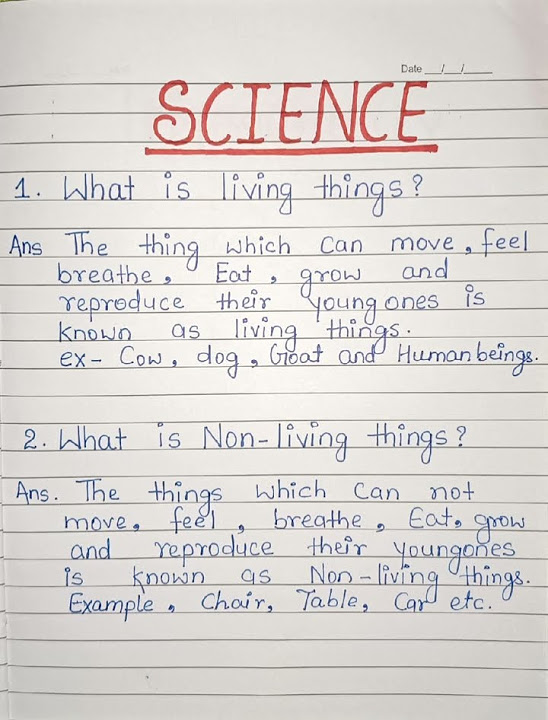 Date __/__/____
SCIENCE
1. What is living things?
Ans The thing which can move, feel
breathe, Eat, grow and
reproduce their young ones is
known as living things.
ex- Cow, dog, Goat and Human beings.
2. What is Non-living things?
Ans. The things which can not
move, feel, breathe, Eat, grow
and reproduce their youngones
is known as Non-living things.
Example, Chair, Table, Car etc.